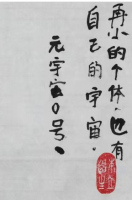 再小的个体,也有
自己的宇宙。
元宇宙0号